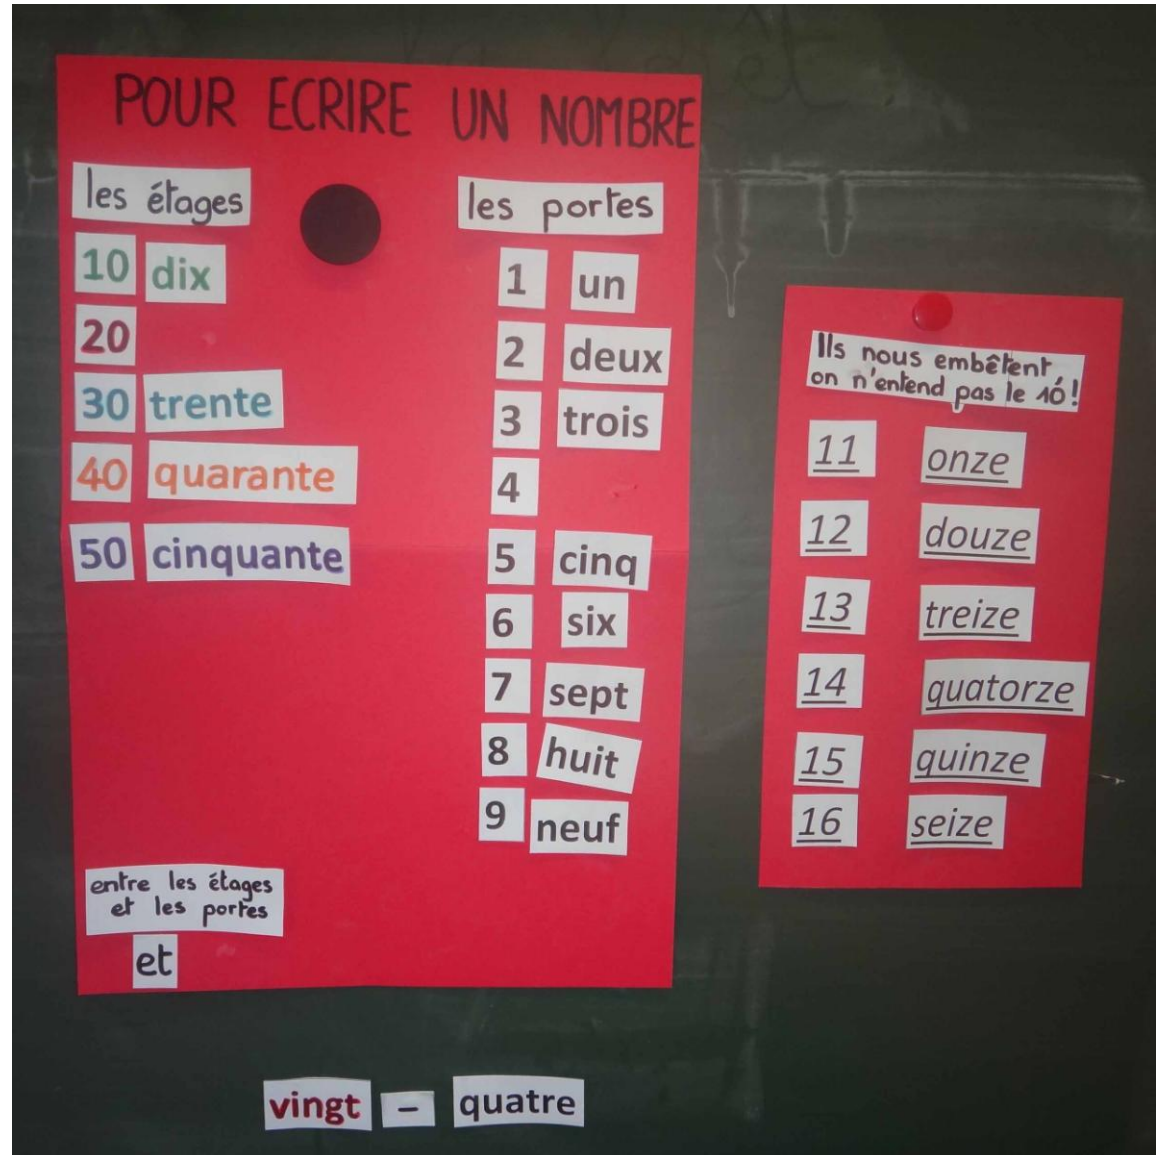 POUR ECRIRE UN NOMBRE
les étages
10 dix
20
30 trente
40 quarante
50 cinquante
entre les étages
et les portes
et
les portes
1 un
2 deux
3 trois
4
5 cinq
6 six
7 sept
8 huit
9 neuf
Ils nous embêtent,
on n'entend pas le 10!
11 onze
12 douze
13 treize
14 quatorze
15 quinze
16 seize
vingt - quatre